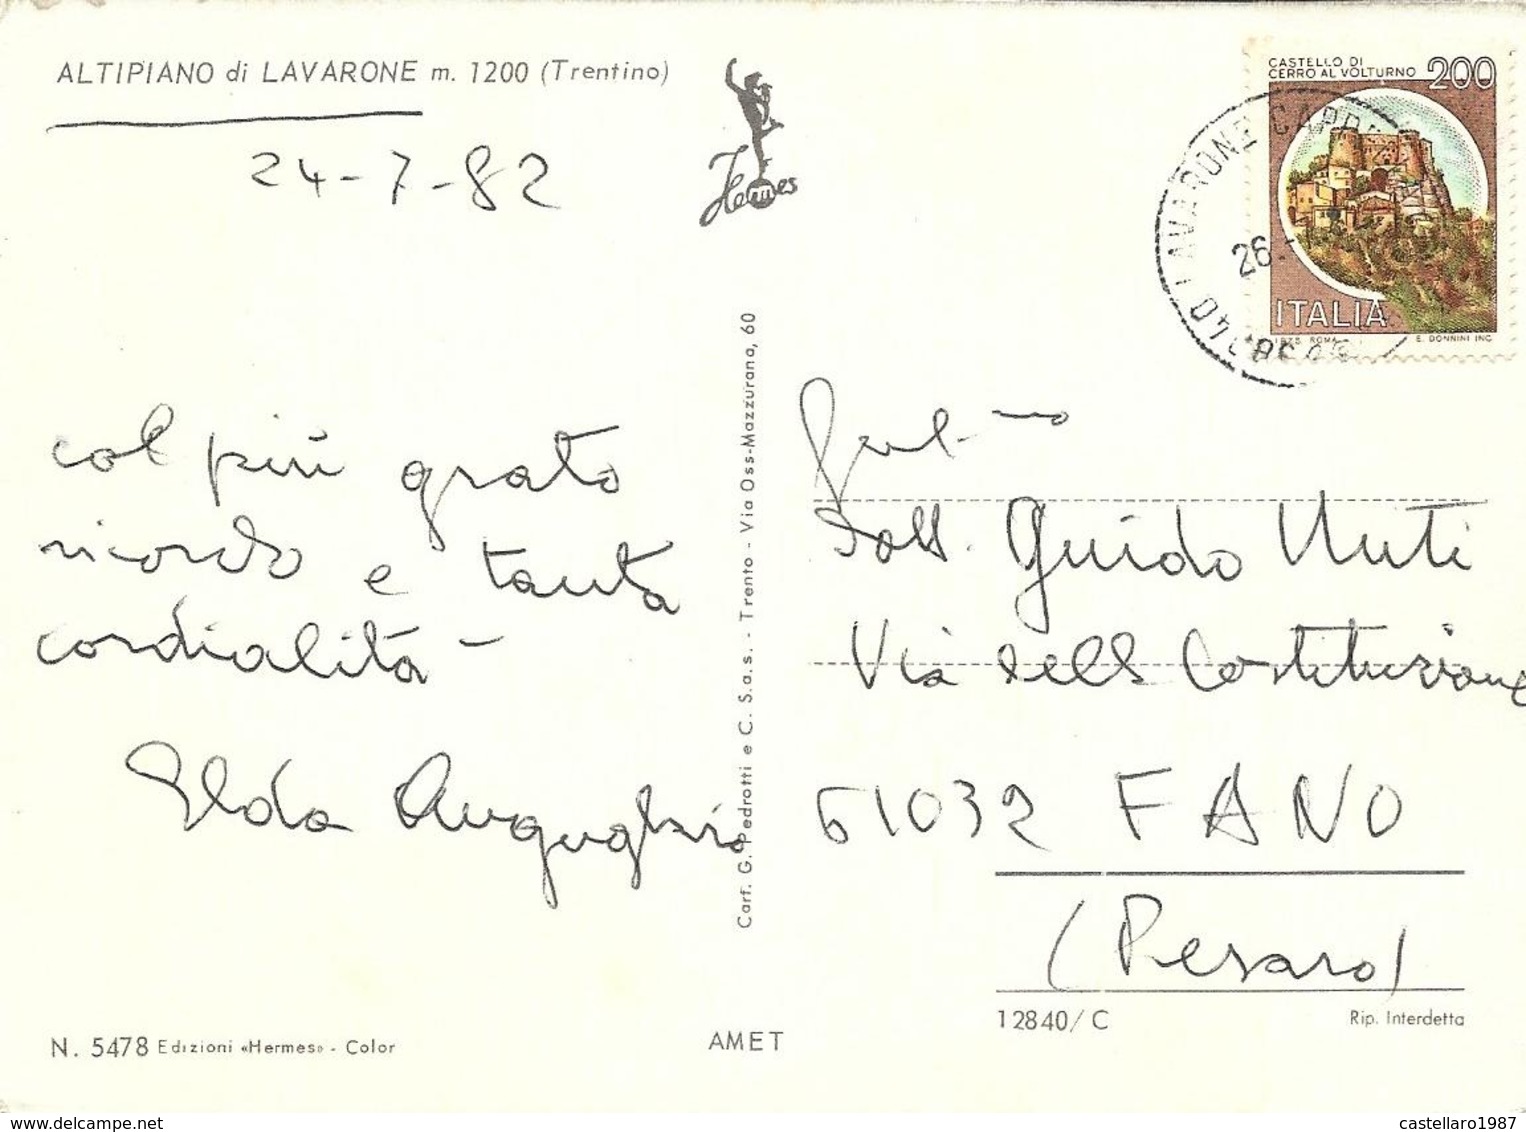 ALTIPIANO di LAVARONE m. 1200 (Trentino)
24-7-82
Hermes
CASTELLO DI
CERRO AL VOLTURNO 200
ITALIA
ROMA
E. DONNINI INC.
LAVARONE
26.
col più grato
ricordo e tanta
cordialità -
Elda
Carf. G. Pedrotti e C. S.a.s. - Trento - Via Oss-Mazzurana, 60
Dott. Guido Nuti
Via della Costituzione
61032 FANO
(Pesaro)
12840/C
Rip. Interdetta
N. 5478 Edizioni «Hermes» - Color
AMET
castellaro1987